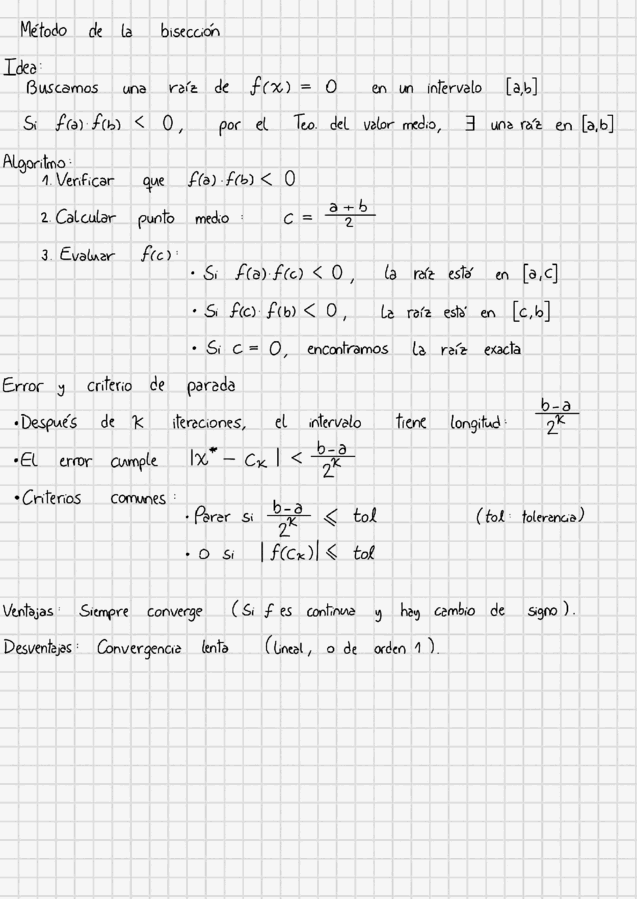 Método de la bisección
Idea:
Buscamos una raíz de f(x) = 0 en un intervalo [a,b]
Si f(a)·f(b) < 0, por el Teo. del valor medio, ∃ una raíz en [a,b]
Algoritmo:
1. Verificar que f(a)·f(b) < 0
2. Calcular punto medio: c = (a + b)/2
3. Evaluar f(c):
• Si f(a)·f(c) < 0, la raíz está en [a,c]
• Si f(c)·f(b) < 0, la raíz está en [c,b]
• Si c = 0, encontramos la raíz exacta
Error y criterio de parada
• Después de K iteraciones, el intervalo tiene longitud: (b-a)/2^K
• El error cumple |x* - c_K| < (b-a)/2^K
• Criterios comunes:
• Parar si (b-a)/2^K ⩽ tol (tol: tolerancia)
• O si |f(c_K)| ⩽ tol
Ventajas: Siempre converge (Si f es continua y hay cambio de signo).
Desventajas: Convergencia lenta (lineal, o de orden 1).